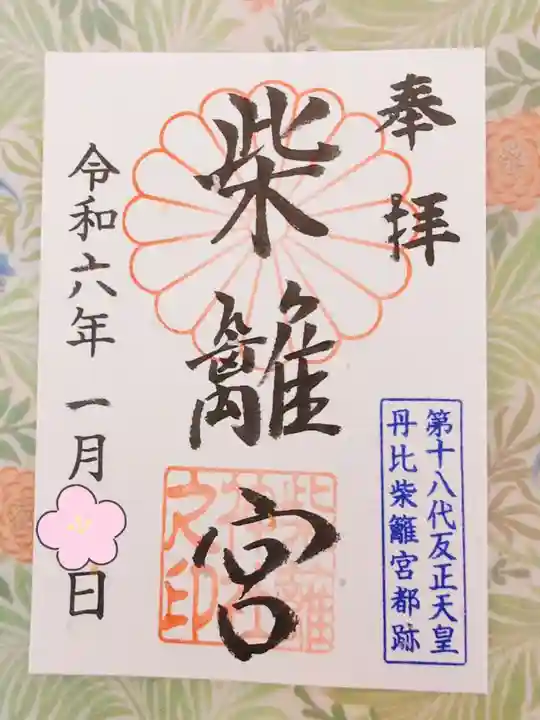 奉拝
第十八代反正天皇
丹比柴籬宮都跡
柴籬宮
令和六年一月日